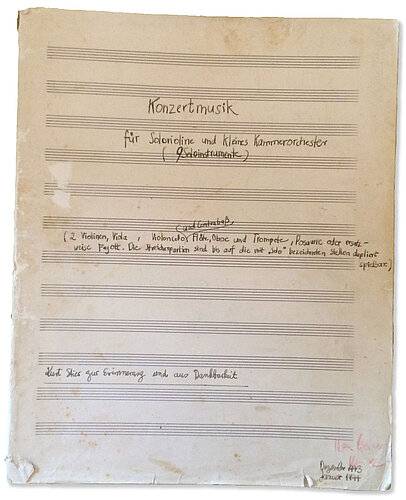 Konzertmusik
für Solovioline und kleines Kammerorchester
(9 Soloinstrumente)
und Contrabaß,
(2 Violinen, Viola, Violoncello, Flöte, Oboe und Trompete, Posaune oder ersatz-
weise Fagott. Die Streicherpartien sind bis auf die mit "Solo" bezeichneten Stellen dupliert
spielbar)
Kurt Stier zur Erinnerung und aus Dankbarkeit
Dezember 1943
Januar 1944